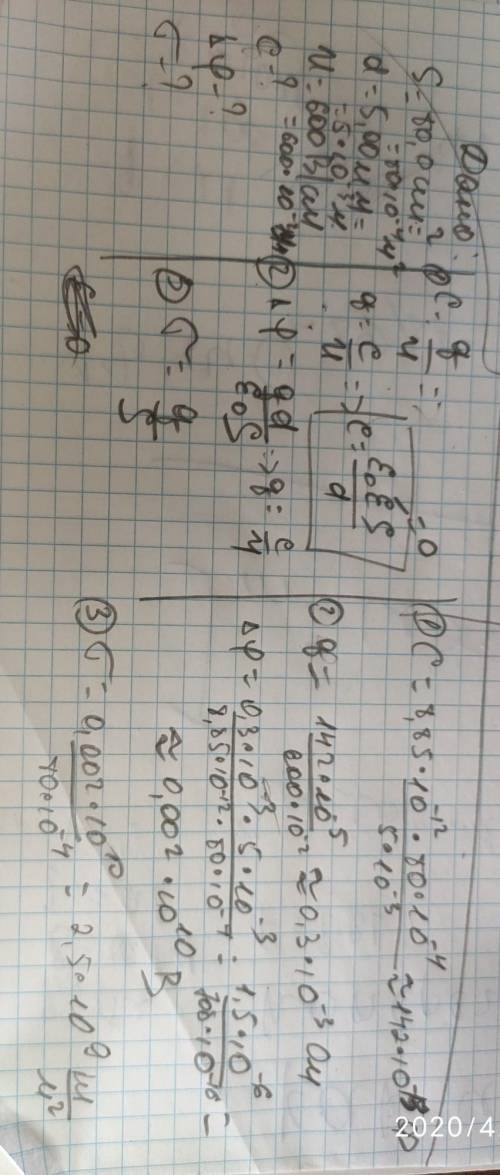 Дано:
S = 80,0 см² =
= 80·10⁻⁴ м²
d = 5,00 мм =
= 5·10⁻³ м
E = 600 В/см
= 600·10⁻²
C - ?
Δφ - ?
σ - ?
① C = q/u =>
q = C/u => C = ε₀εS/d
② Δφ = qd/ε₀S => q = C/u
③ σ = q/S
① C = 8,85·10⁻¹²·80·10⁻⁴/5·10⁻³ ≈ 142·10
② q = 142·10⁻⁵/600·10² ≈ 0,3·10⁻³
Δφ = 0,3·10⁻³·5·10⁻³/8,85·10⁻¹²·80·10⁻⁴ = 1,5·10⁻⁶/ =
≈ 0,002·10¹⁰ В
③ σ = 0,002·10¹⁰/80·10⁻⁴ = 2,5·10⁹ /м²
2020/4